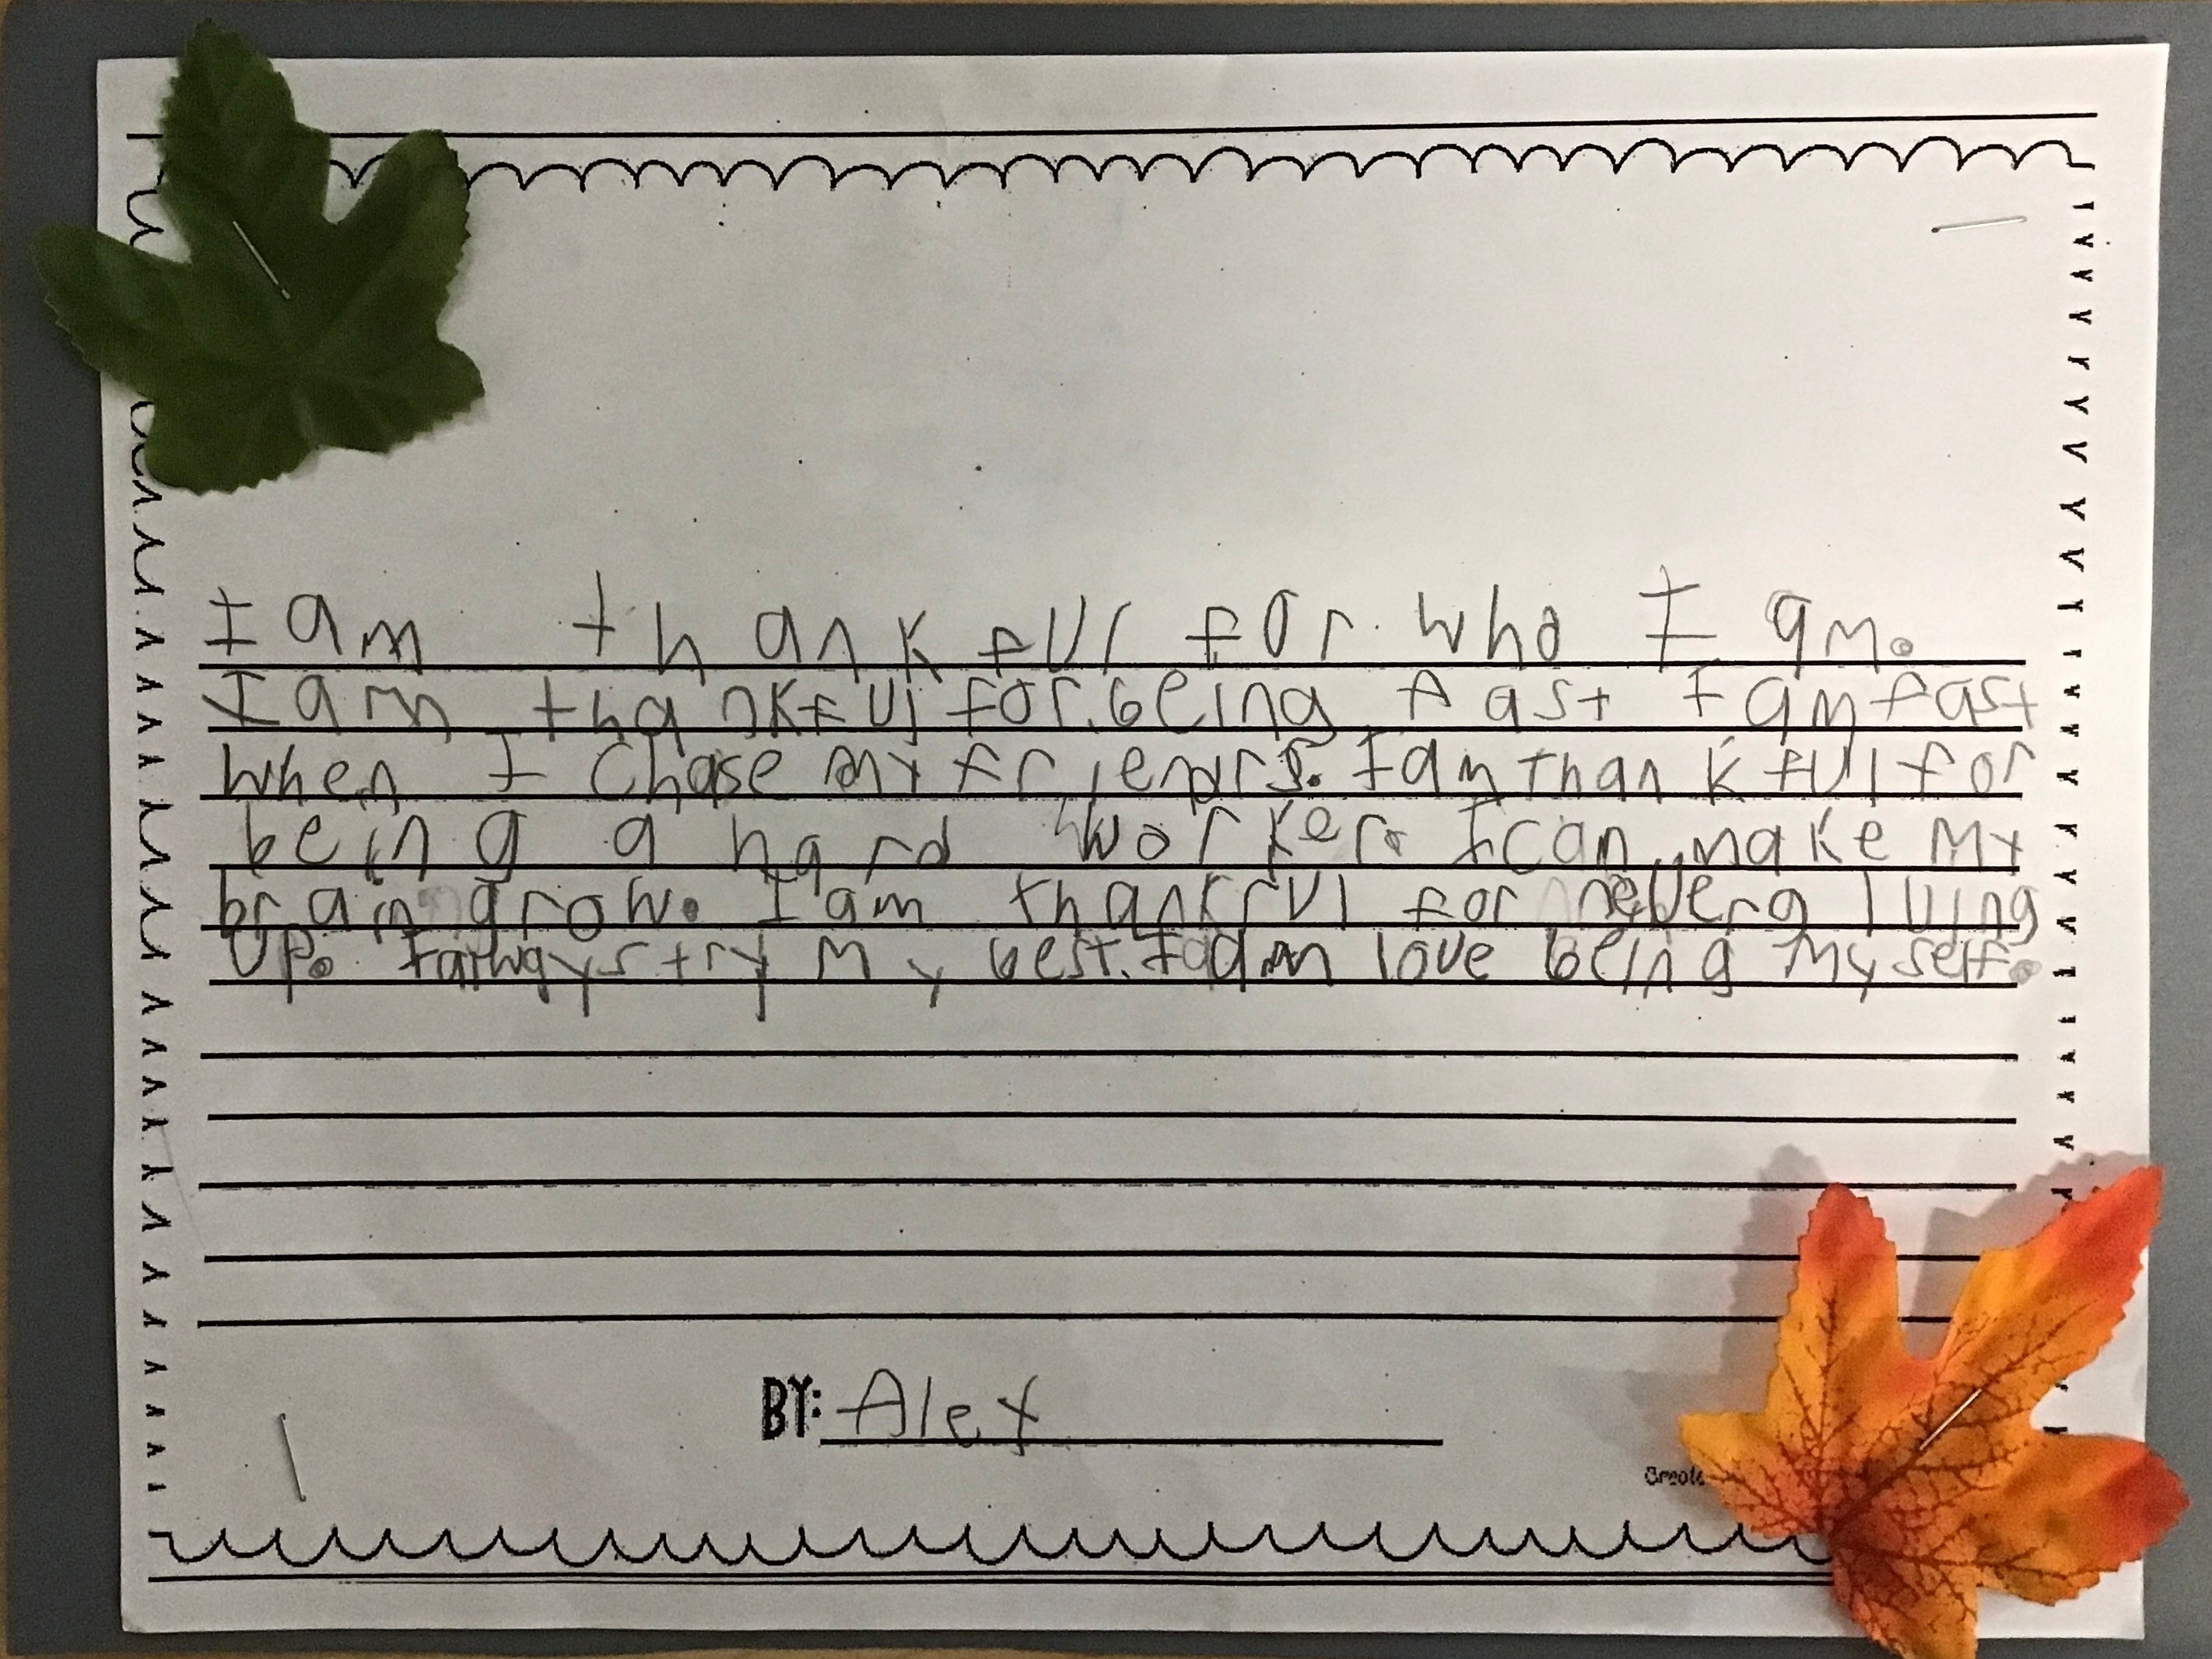 I am thankful for who I am.
I am thankful for being fast I am fast
when I chase my friends. I am thankful for
being a hard worker. I can make my
brain grow. I am thankful for never g iving
up. I always try my best. I am love being myself.
BY: Alex